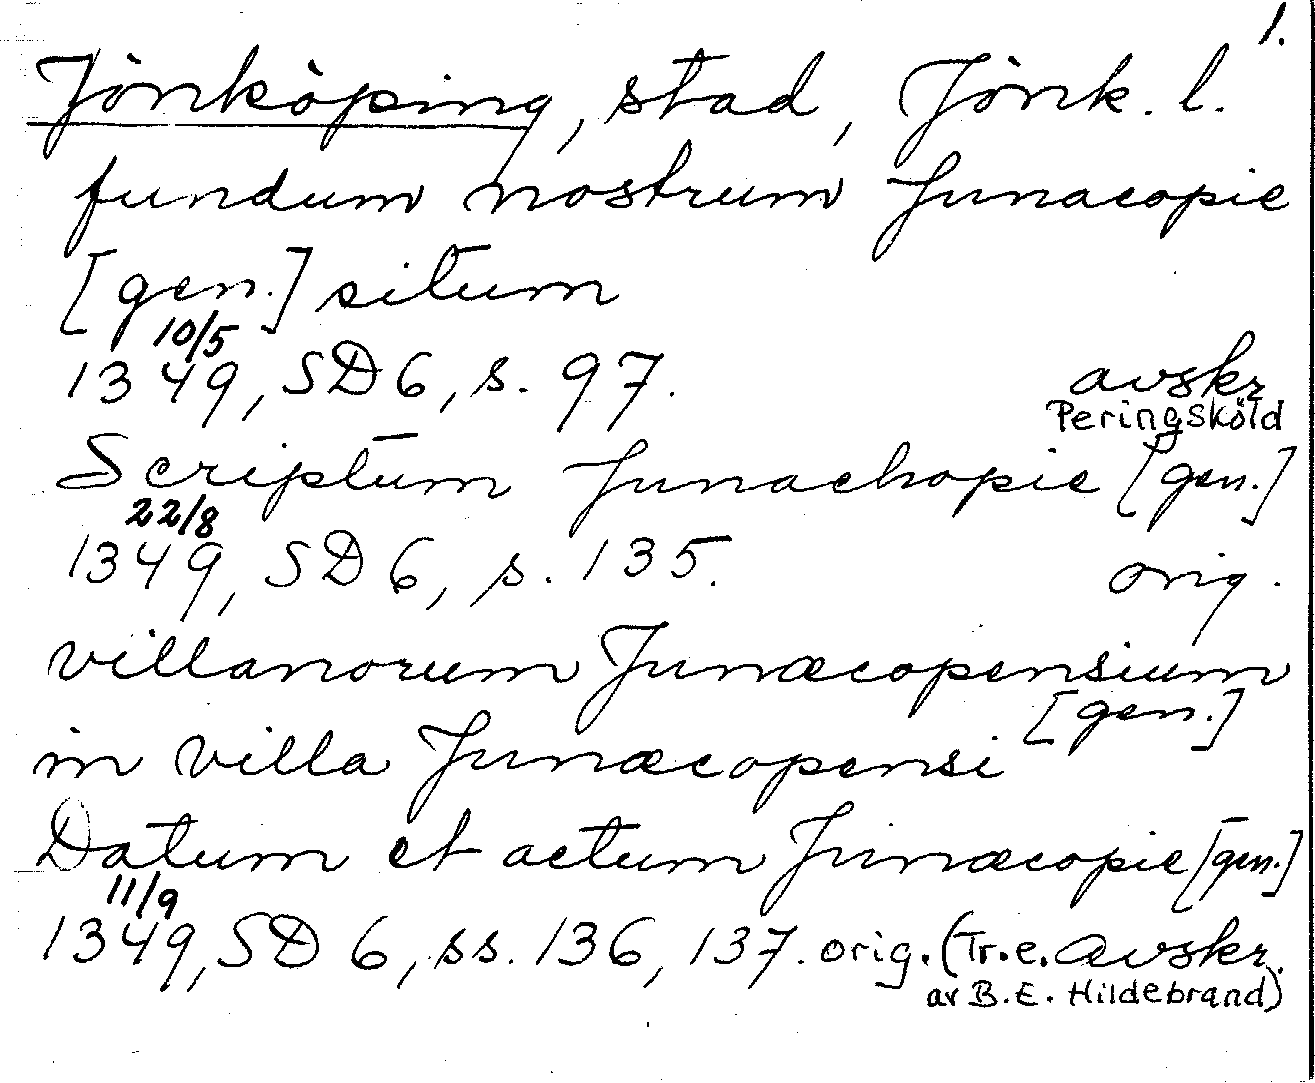 1.
Jönköping, stad, Jönk. l.
fundum nostrum Junacopie
[gen.] situm
10/5
1349, SD 6, s. 97. avskr
Peringsköld
Scriptum Junachopie [gen.]
22/8
1349, SD 6, s. 135. orig.
villanorum Junæcopensium
[gen.]
in villa Junæcopensi
Datum et actum Junæcopie [gen.]
11/9
1349, SD 6, ss. 136, 137. orig. (Tr. e. avskr.
av B. E. Hildebrand)